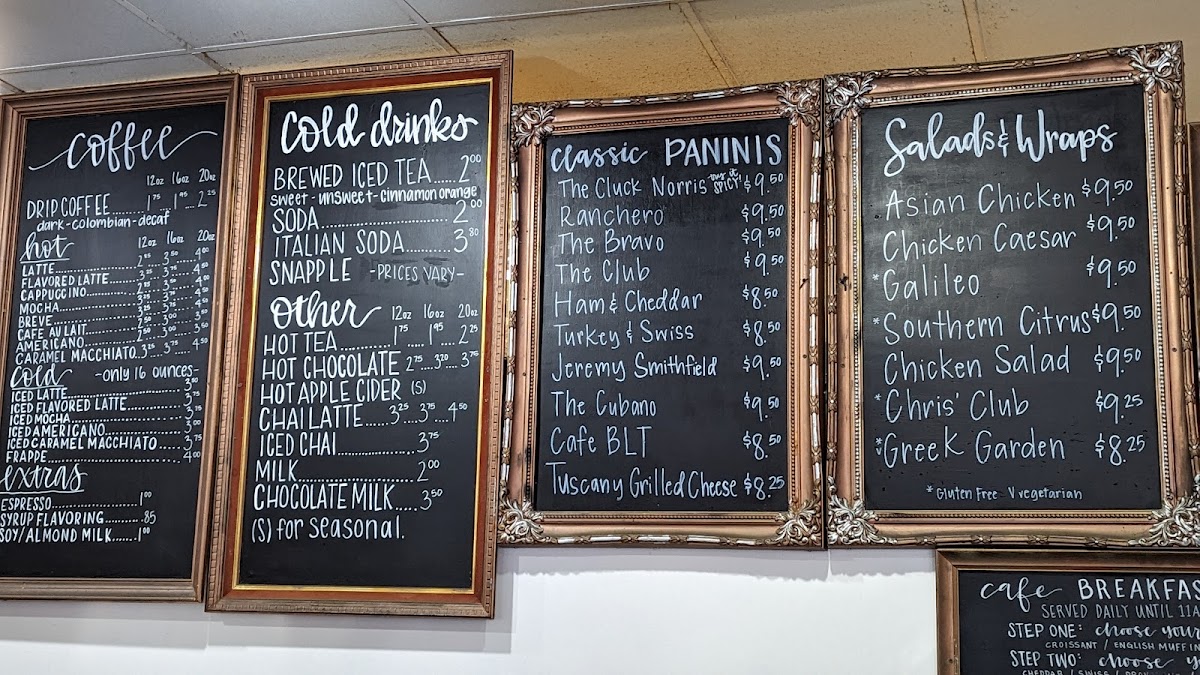 coffee
12oz 16oz 20oz
DRIP COFFEE.......1.75....1.95....2.25
dark-colombian-decaf
hot 12oz 16oz 20oz
LATTE
FLAVORED LATTE
CAPPUCCINO
MOCHA
BREVE
CAFE AU LAIT
AMERICANO
CARAMEL MACCHIATO...3.25....3.75....4.50
cold -only 16 ounces-
ICED LATTE
ICED FLAVORED LATTE
ICED MOCHA
ICED AMERICANO
ICED CARAMEL MACCHIATO....3.75
FRAPPE....4.00
extras
ESPRESSO..........1.00
SYRUP FLAVORING.........85
SOY/ALMOND MILK......1.00
cold drinks
BREWED ICED TEA.....2.00
sweet - unsweet - cinnamon orange
SODA....................2.00
ITALIAN SODA...........3.80
SNAPPLE -PRICES VARY-
Other 12oz 16oz 20oz
HOT TEA...........1.75....1.95....2.25
HOT CHOCOLATE 2.75...3.20...3.75
HOT APPLE CIDER (S)
CHAI LATTE......3.25..3.75..4.50
ICED CHAI..............3.75
MILK...................2.00
CHOCOLATE MILK.....3.50
(S) for seasonal.
classic PANINIS
The Cluck Norris $9.50
Ranchero $9.50
The Bravo $9.50
The Club $9.50
Ham & Cheddar $8.50
Turkey & Swiss $8.50
Jeremy Smithfield $9.50
The Cubano $9.50
Cafe BLT $8.50
Tuscany Grilled Cheese $8.25
Salads & Wraps
Asian Chicken $9.50
Chicken Caesar $9.50
*Galileo $9.50
*Southern Citrus $9.50
Chicken Salad $9.50
*Chris' Club $9.25
*vGreek Garden $8.25
*Gluten Free V vegetarian
cafe BREAKFAS
SERVED DAILY UNTIL 11A
STEP ONE: choose your
CROISSANT / ENGLISH MUFFIN
STEP TWO: choose y